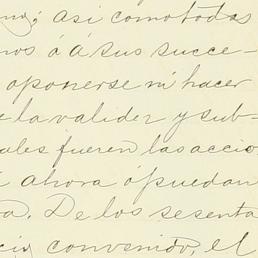 así como todas
nos ó á sus succe-
oponerse ni hacer
la validez y sub-
ales fueren las accio
ahora ó puedan
De los sesenta
convenido, el